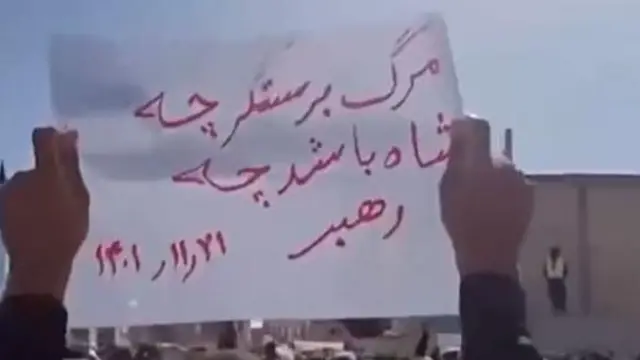 مرگ بر ستمگر چه
شاه باشد چه
رهبر
۱۴۰۱/۱۱/۲۱